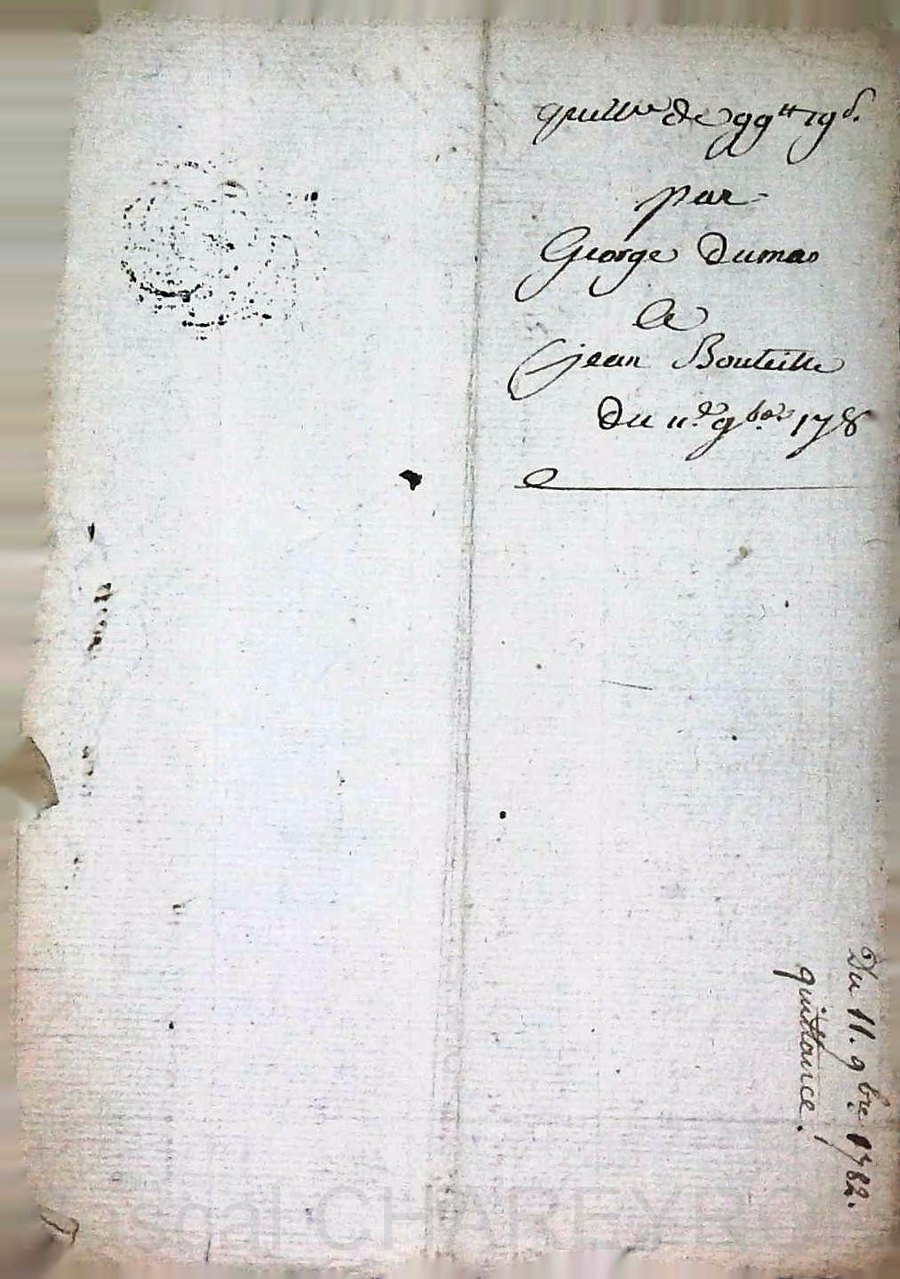 quittce de 99tt 19s.
par
George Dumas
a
jean Bouteille
Du 11e. 9bre 178
Du 11. 9bre 1782.
quittance.
Pascal CHAREYRO